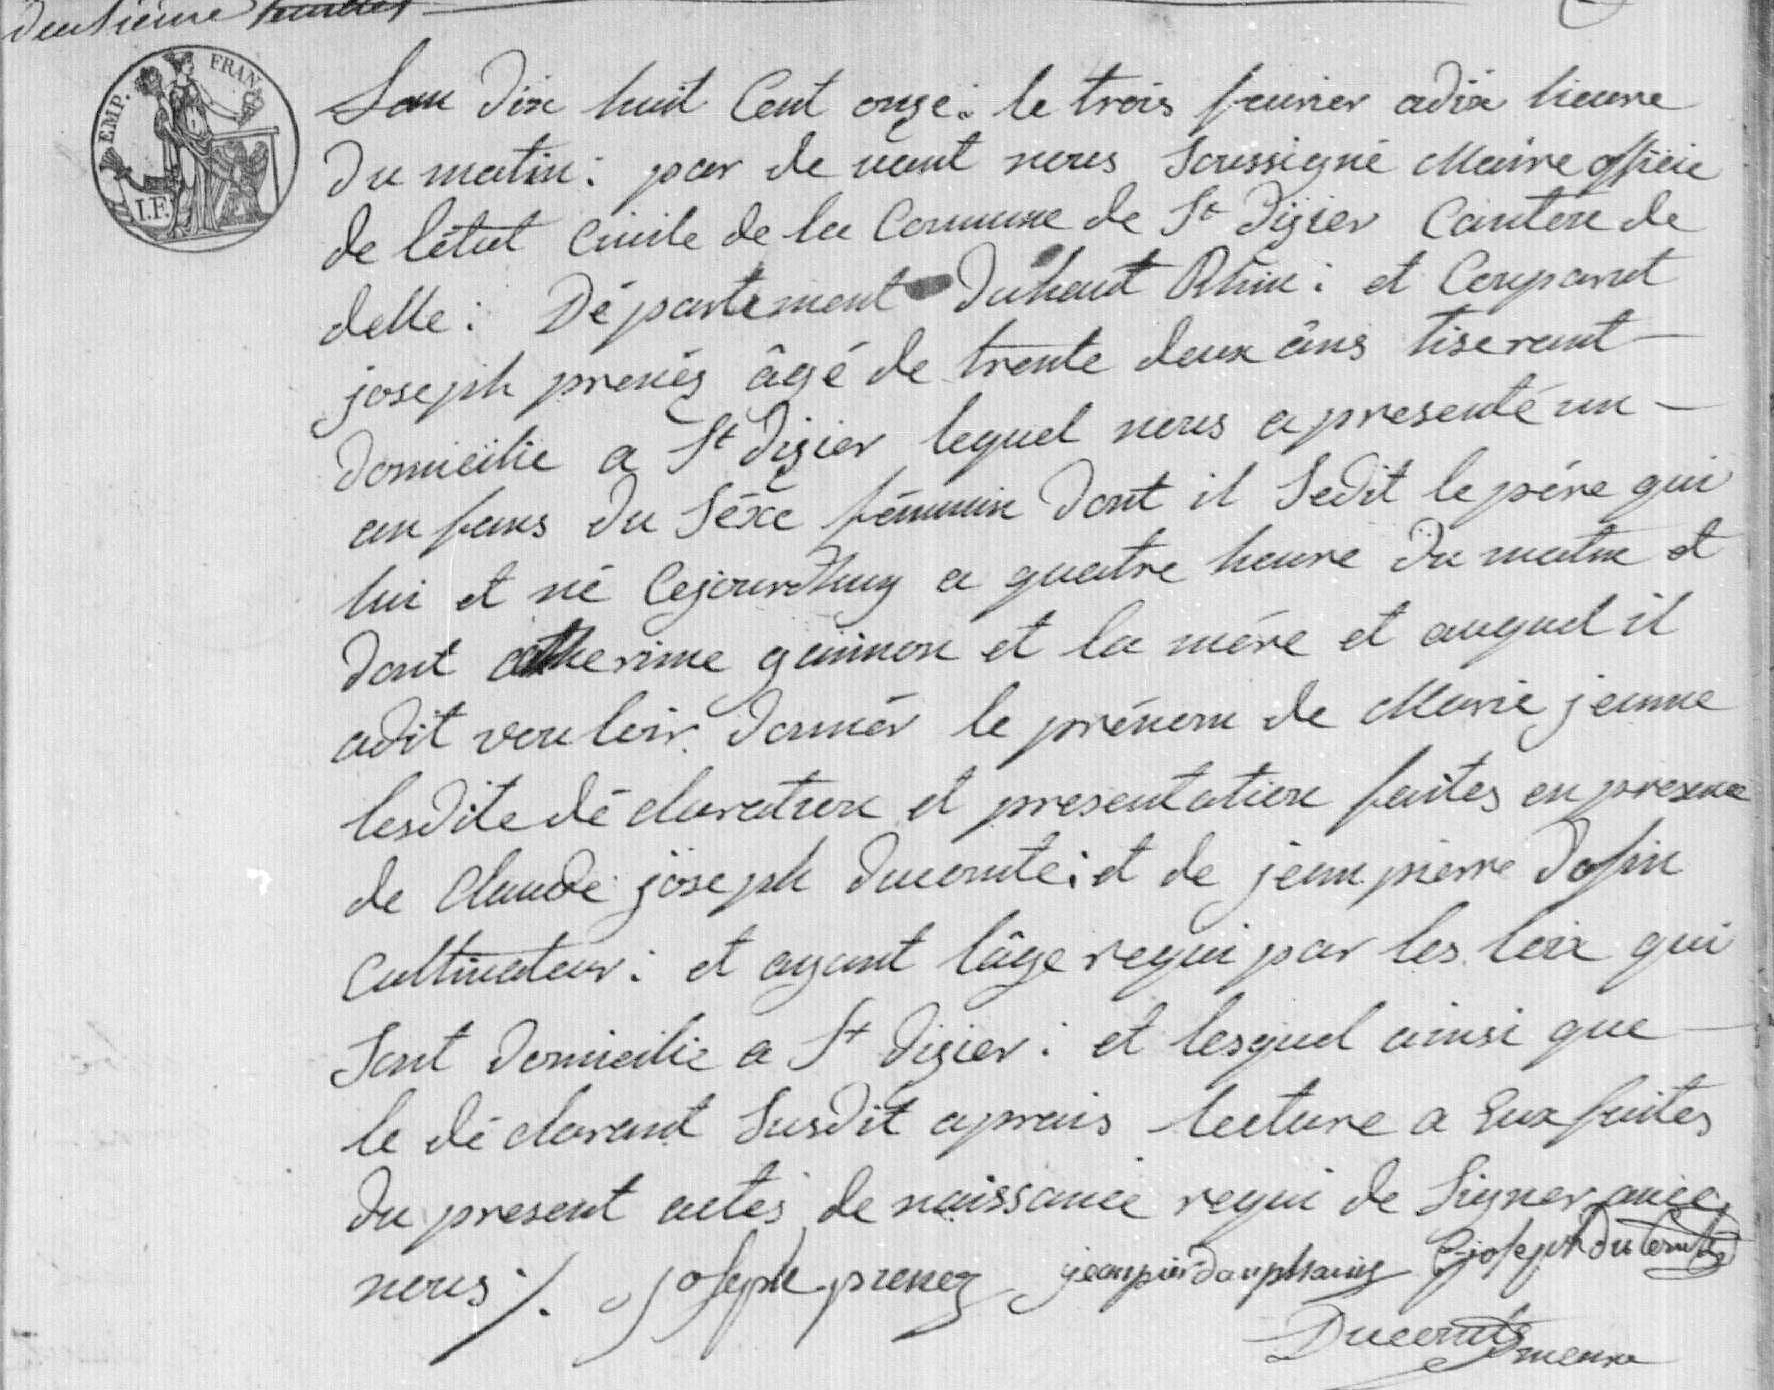 deuxieme feuillet
EMP. FRAN.
I.F.
Lan dix huit Cent onze : le trois fevrier adix heure
Du matin : par de vant nous Soussigné Maire officie
de létat civile de la Commune de St Dizier Canton de
delle : Département Duhaut Rhin : et Comparut
joseph prenéz âgé de trente deux âns tiserant
Domicilie a St Dizier lequel nous a presenté un
an fans du Séxe féminin Dont il Sedit le pére qui
lui et né Cejourdhuy a quatre heure Du matin et
Dont catherine gainnon et la mére et auquel il
adit vouloir Donnér le prénom de Marie jeanne
lesdite déclaration et presentation faites en presence
de Claude joseph Ducomte : et de jean pierre Dofin
Cultivateur : et ayant lâge requi par les loix qui
Sont Domicilie a St Dizier : et lesquel ainsi que
le déclarant Susdit aprais lecture a Eux faites
Du present actes de naissance requi de Signer avec
nous /. joseph prenez jeanpier dauphain Cjoseph Ducomte
Ducomte maire